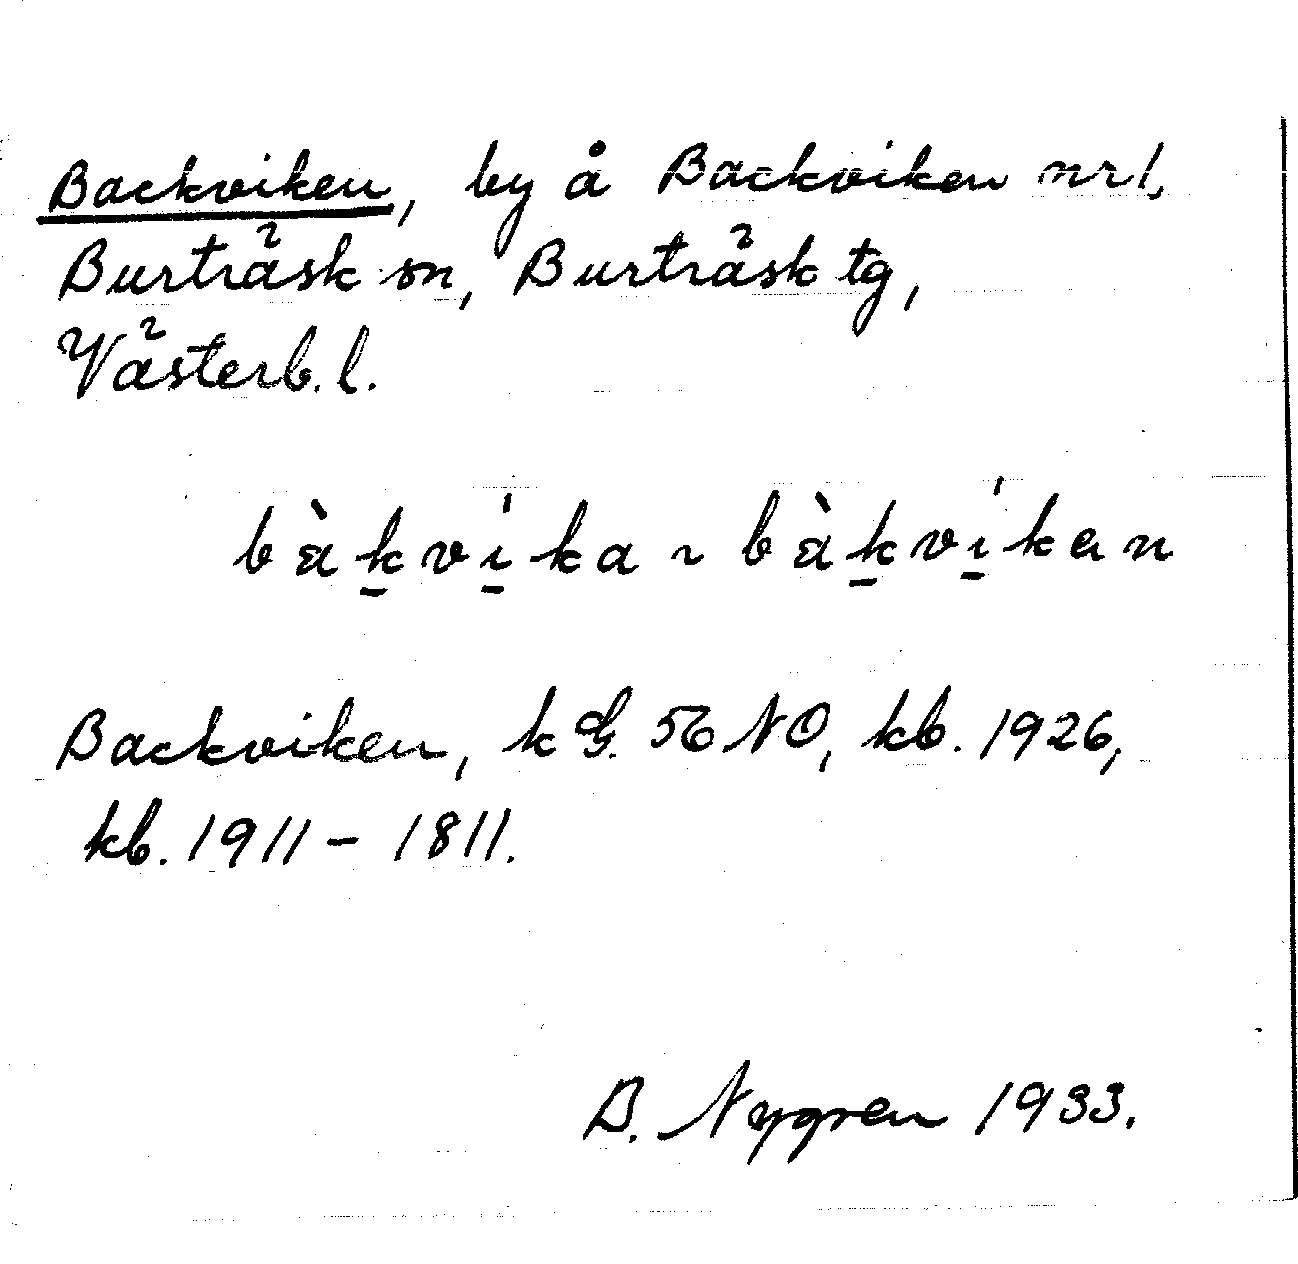 Backviken, by å Backviken nr 1,
Burträsk sn, Burträsk tg,
Västerb. l.
bàk̠vi̠̍ka ~ bàk̠vi̠̍kan
Backviken, k G. 56 NO, kb. 1926,
kb. 1911 - 1811.
B. Nygren 1933.